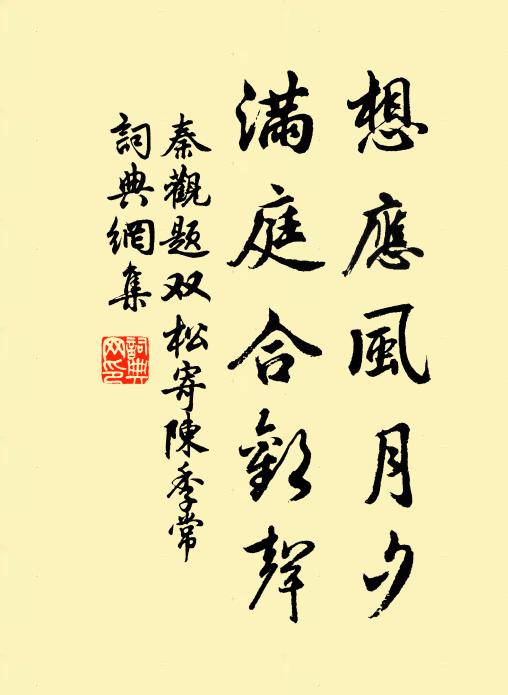 想應風月夕
滿庭合歡聲
秦觀题双松寄陳季常
詞典網集
詞典
网印